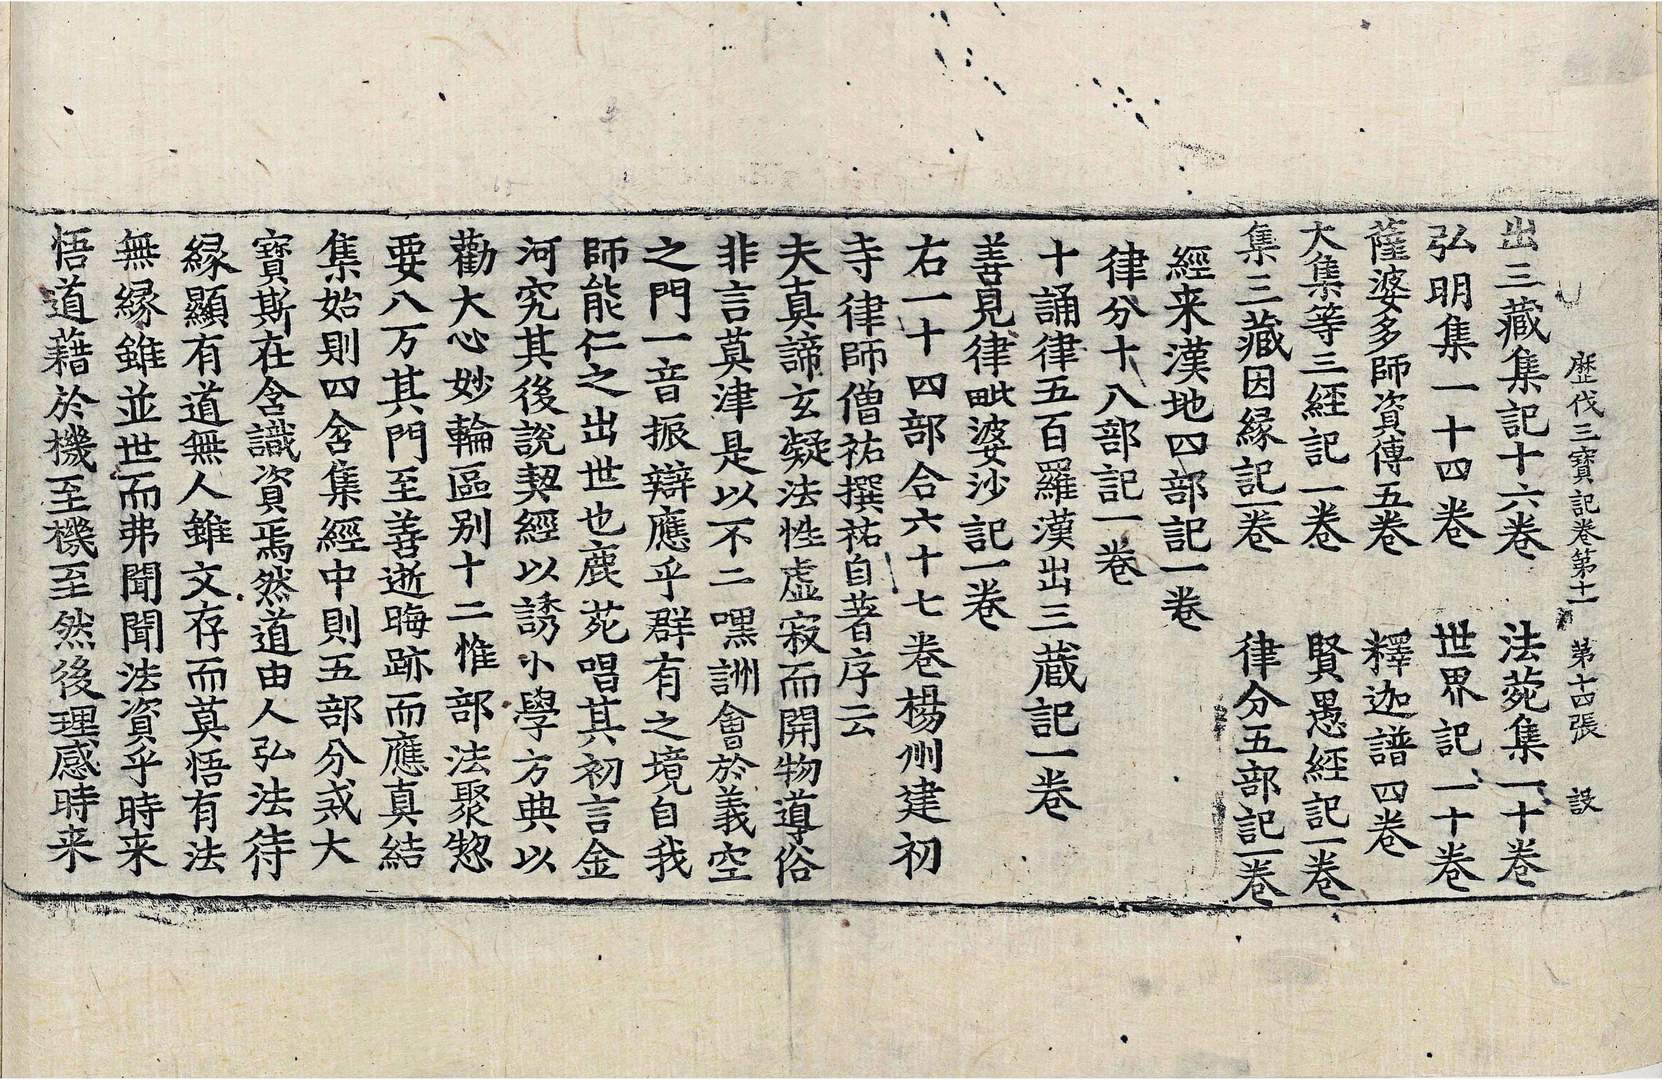 歷代三寶記卷第十一 第十四張 設
出三藏集記十六卷 法菀集一十卷
弘明集一十四卷 世界記一十卷
薩婆多師資傳五卷 釋迦譜四卷
大集等三經記一卷 賢愚經記一卷
集三藏因緣記一卷 律分五部記一卷
經来漢地四部記一卷
律分十八部記一卷
十誦律五百羅漢出三藏記一卷
善見律毗婆沙記一卷
右一十四部合六十七卷楊州建初
寺律師僧祐撰祐自著序云
夫真諦玄凝法性虛寂而開物導俗
非言莫津是以不二嘿詶會於義空
之門一音振辯應乎群有之境自我
師能仁之出世也鹿菀唱其初言金
河究其後說契經以誘小學方典以
勸大心妙輪區別十二惟部法聚惣
要八万其門至善逝晦跡而應真結
集始則四含集經中則五部分戒大
寶斯在含識資焉然道由人弘法待
緣顯有道無人雖文存而莫悟有法
無緣雖並世而弗聞聞法資乎時来
悟道藉於機至機至然後理感時来